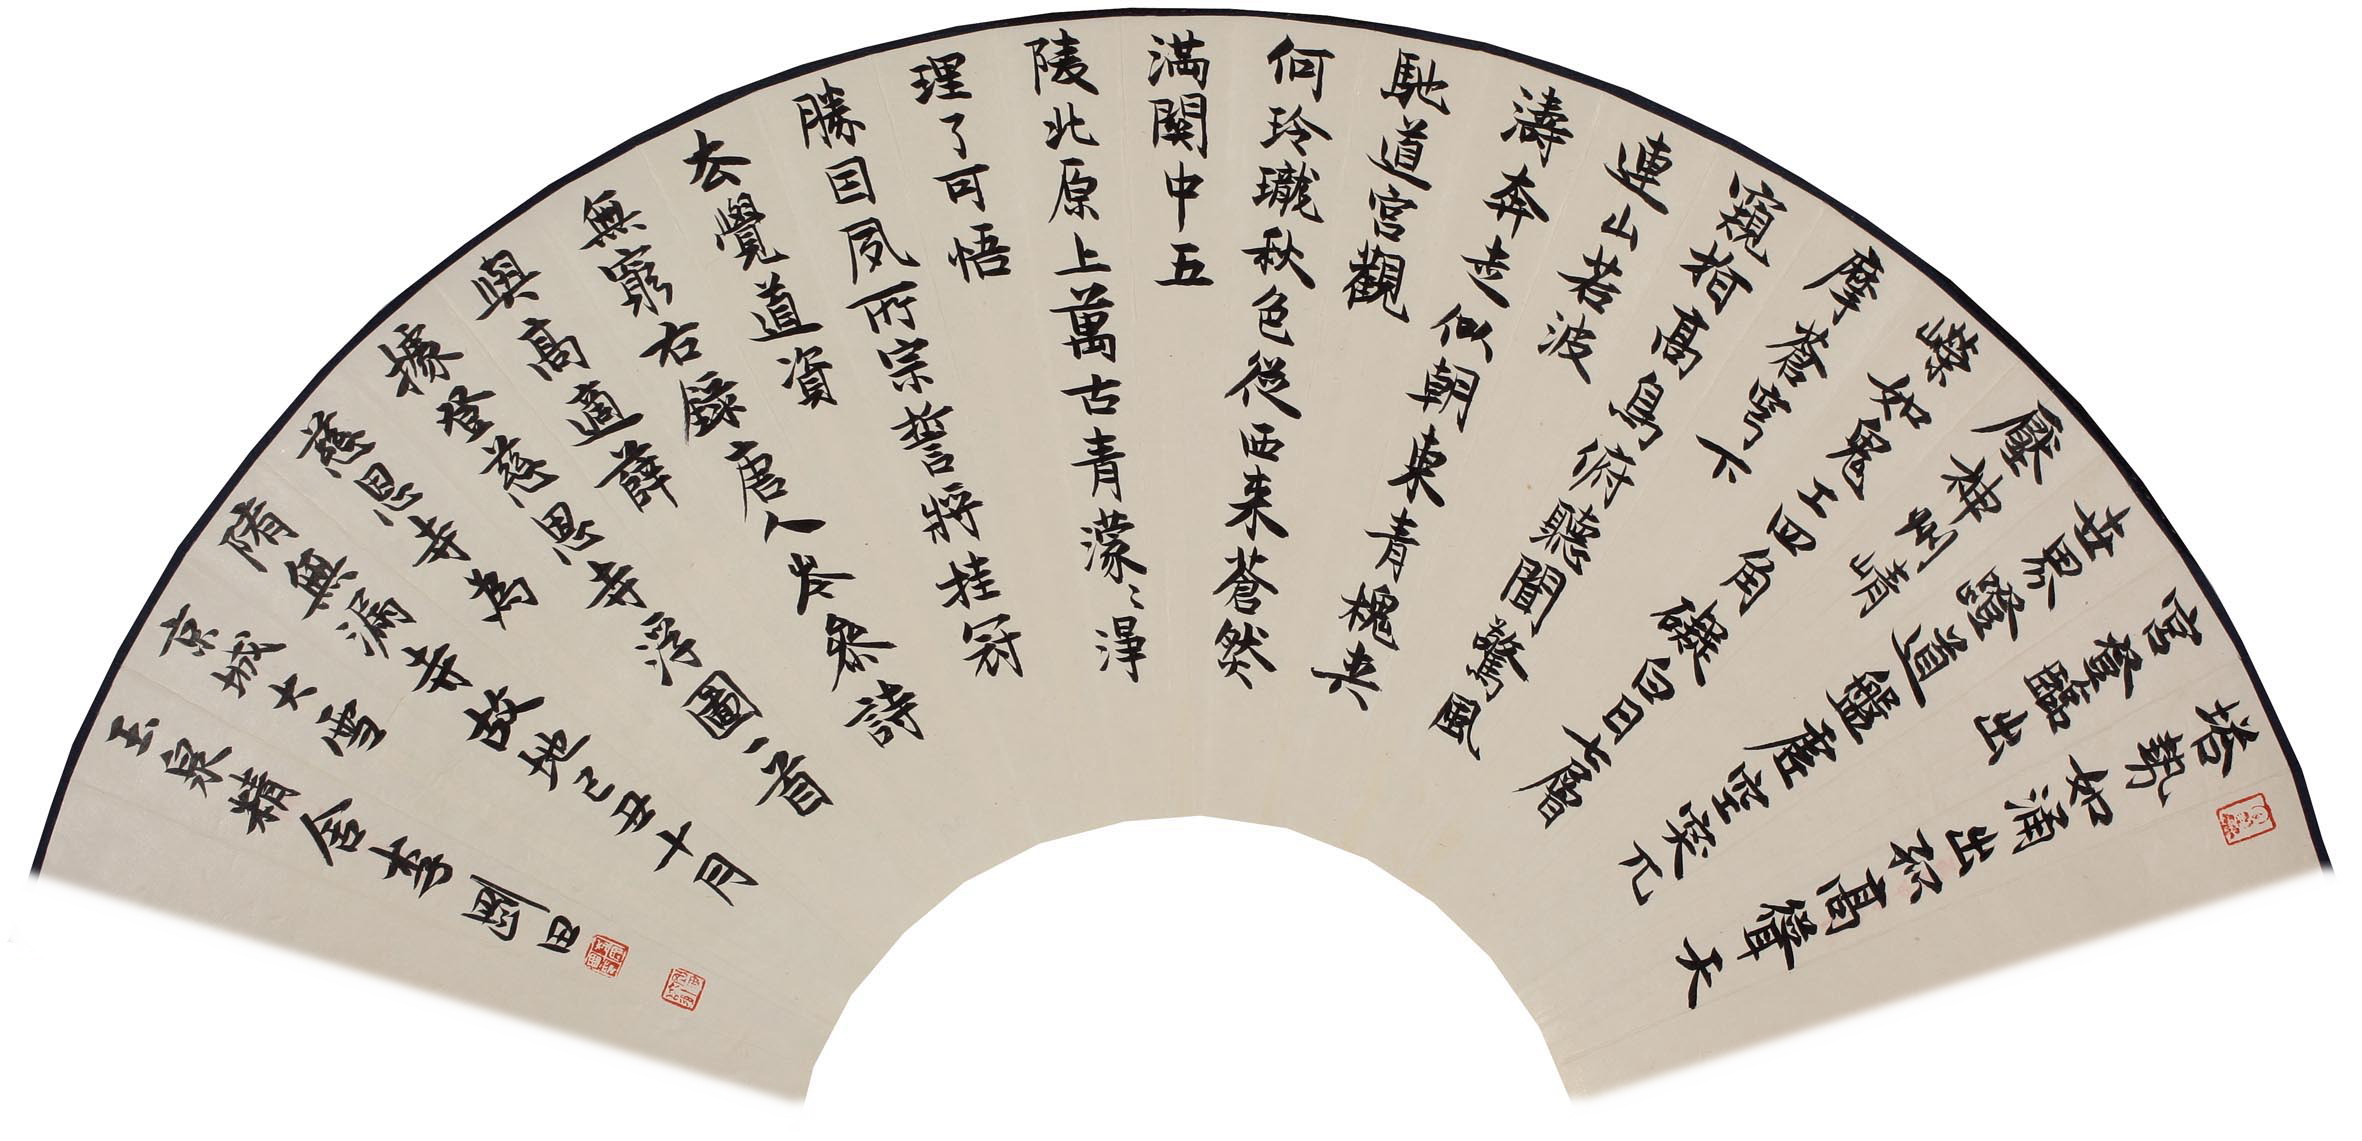 塔勢如涌出孤高聳天
宮登臨出
世界磴道盤虛空突兀
壓神州崢
嶸如鬼工四角礙白日七層
摩蒼穹下
窺指高鳥俯聽聞驚風
連山若波
濤奔走似朝東青槐夾
馳道宮觀
何玲瓏秋色從西来蒼然
滿關中五
陵北原上萬古青濛〻淨
理了可悟
勝因夙所宗誓將挂冠
去覺道資
無窮右錄唐人岑參詩
與高適薛
據登慈恩寺浮圖一首
慈恩寺為
隋無漏寺故地己丑十月
京城大雪
玉泉精舍李剛田